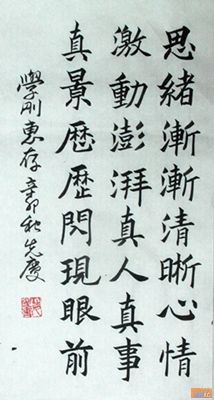 思緒漸漸清晰心情
激動澎湃真人真事
真景歷歷閃現眼前
學剛惠存辛卯秋先慶